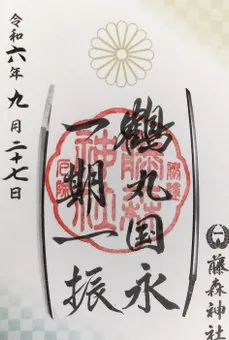 鶴丸国永
一期一振
令和六年九月二十七日
藤森神社